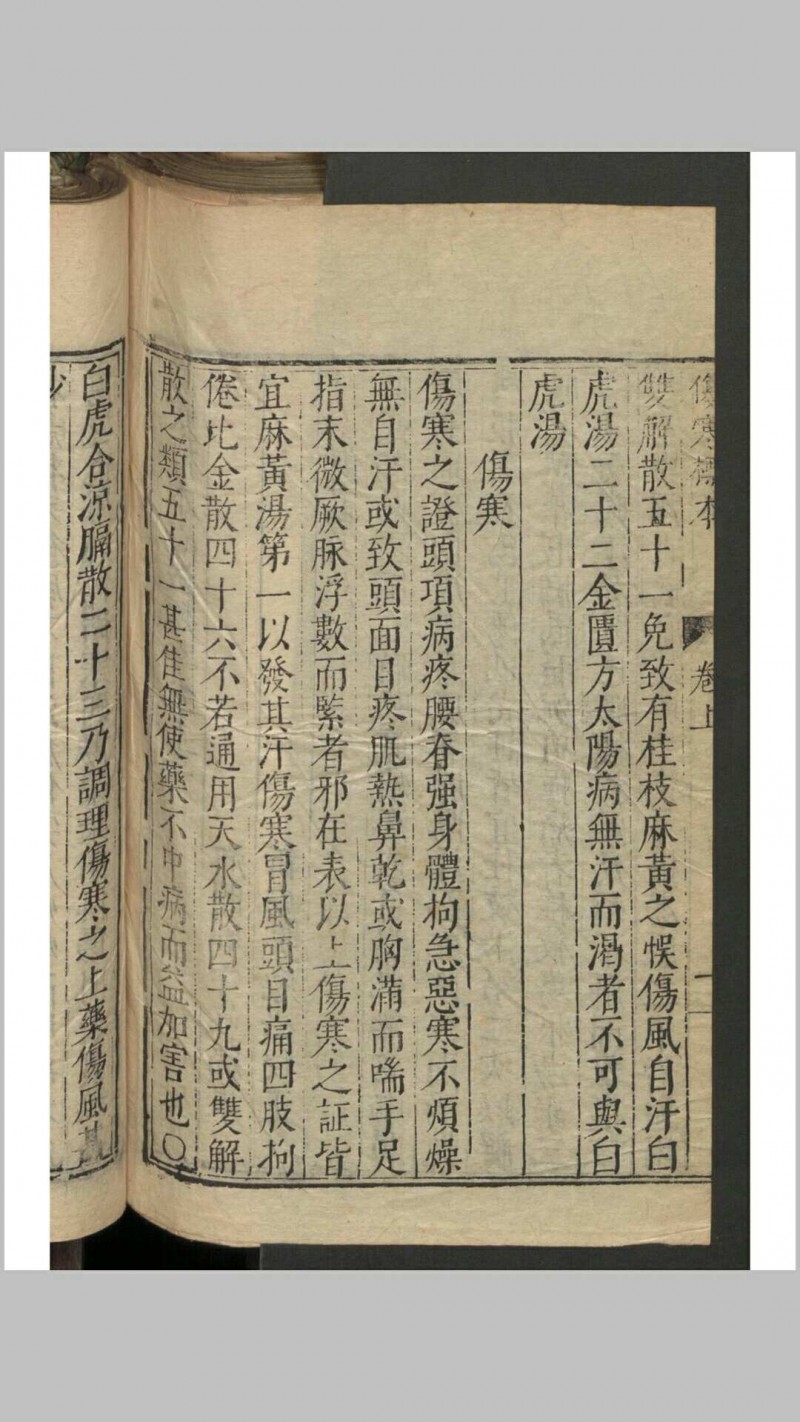 傷寒標本 卷上 一
雙解散五十一免致有桂枝麻黃之悮傷風自汗白
虎湯二十二金匱方太陽病無汗而渴者不可與白
虎湯
傷寒
傷寒之證頭項病疼腰脊强身體拘急惡寒不煩燥
無自汗或致頭面目疼肌熱鼻乾或胸滿而喘手足
指末微厥脉浮數而緊者邪在表以上傷寒之証皆
宜麻黃湯第一以發其汗傷寒冒風頭目痛四肢拘
倦比金散四十六不若通用天水散四十九或雙解
散之類五十一甚佳無使藥不中病而益加害也○
白虎合涼膈散二十三乃調理傷寒之上藥傷風甚
妙